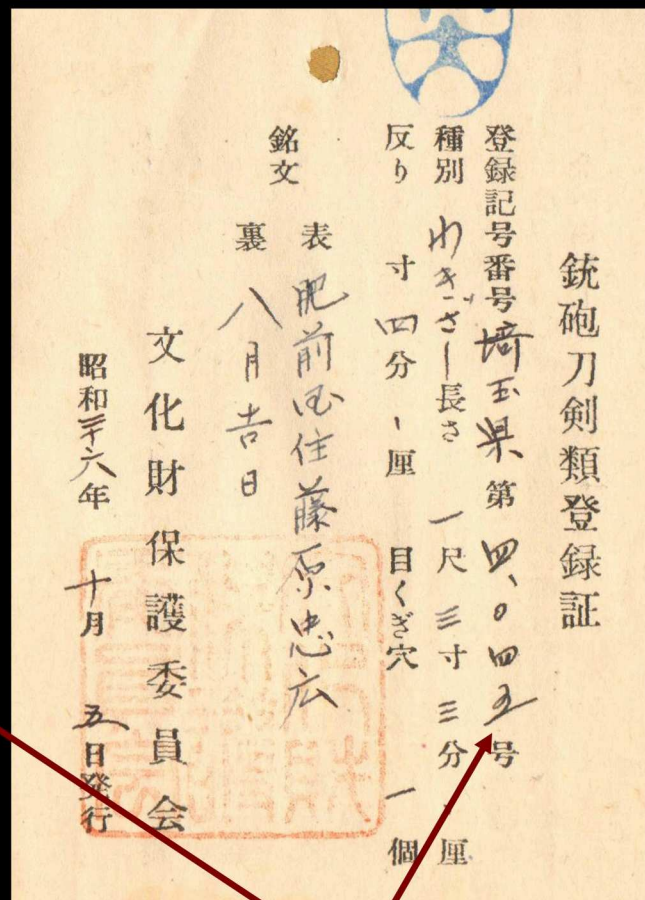 銃砲刀剣類登録証
登録記号番号 埼玉県 第 四、〇四五 号
種別 わきざし 長さ 一尺 三寸 三分 、厘
反り 寸 四分 、厘 目くぎ穴 一個
銘文 表 肥前国住藤原忠広
裏 八月吉日
文化財保護委員会
昭和三十六年 十月 五日発行